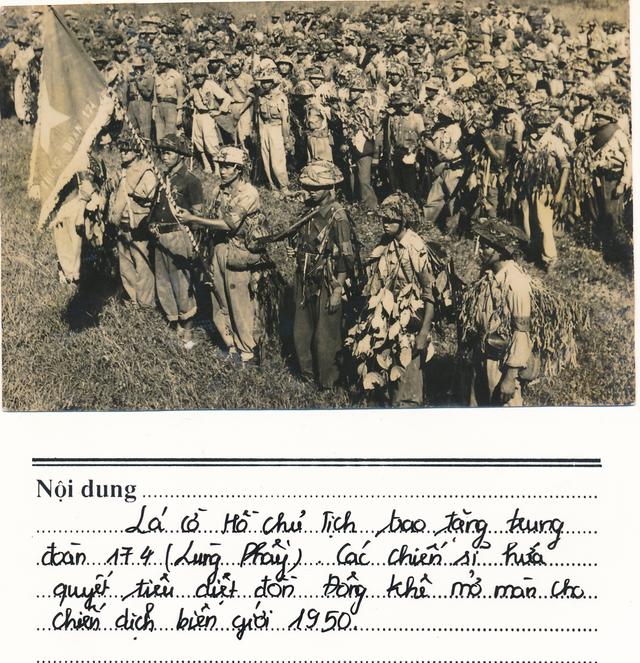 Nội dung
Lá cờ Hồ chủ tịch trao tặng trung
đoàn 174 (Lũng Phầy). Các chiến sĩ hứa
quyết tiêu diệt đồn Đông Khê mở màn cho
chiến dịch biên giới 1950.